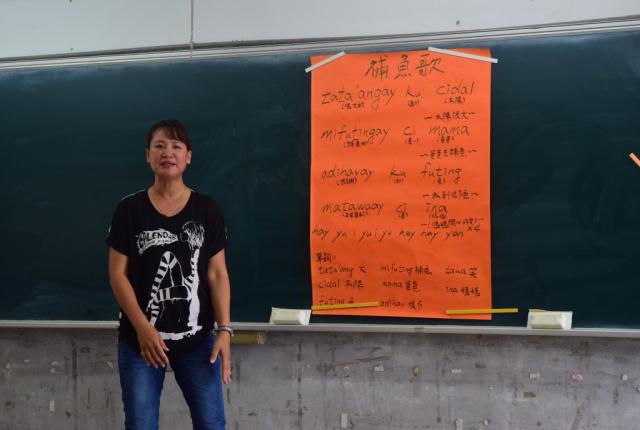 捕魚歌
tata'angay ku cidal
(太陽)
~太陽很大~
mifutingay ci mama
(爸爸)
~爸爸去捕魚~
adihayay ku futing
(魚)
matawaay ci ina
(媽媽)
hay yu i yu i yu hay hay yan
單詞:
tata'ang 大 mifuting 捕魚 tawa 笑
cidal 太陽 mama 爸爸 ina 媽媽
futing 魚 adihay 很多